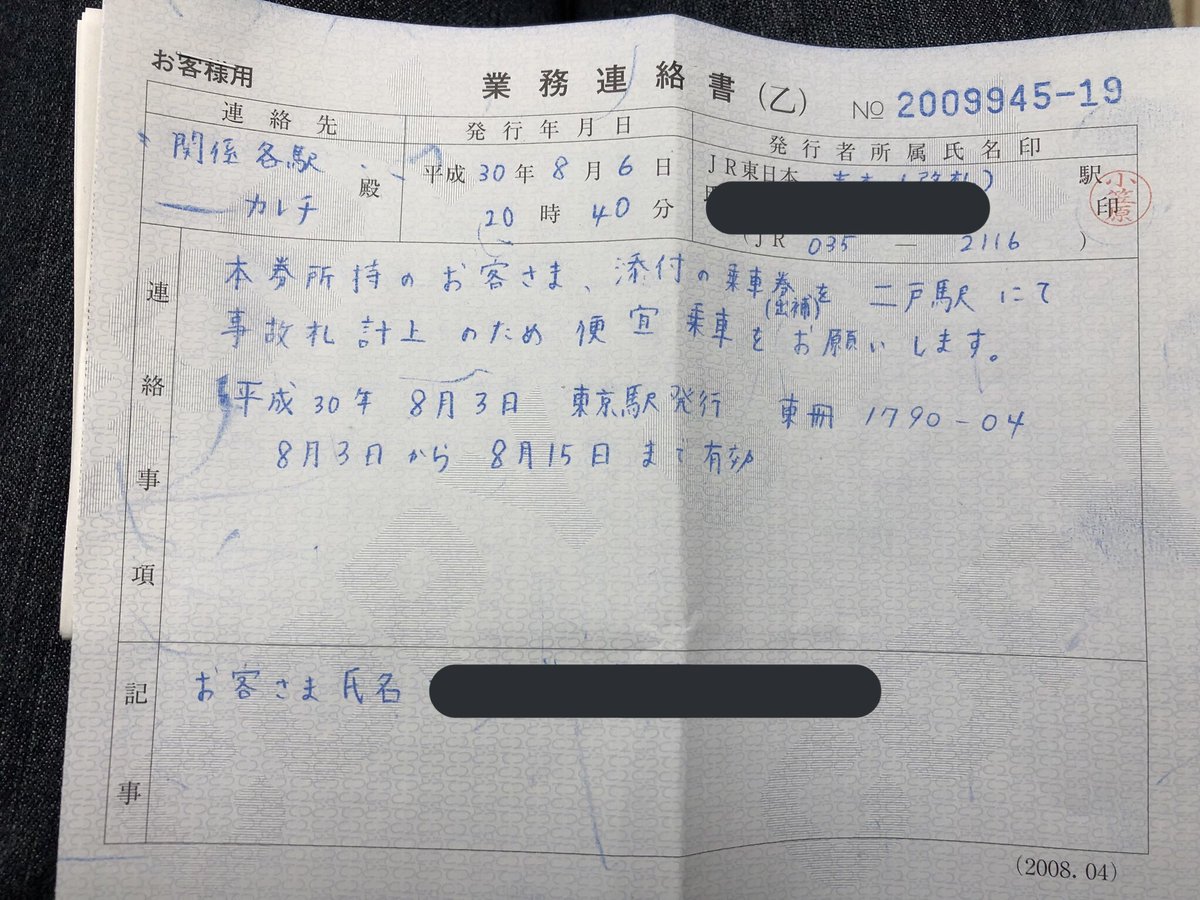 お客様用
業務連絡書(乙) № 2009945-19
連絡先
関係各駅
カレチ 殿
発行年月日
平成30年8月6日
20時40分
発行者所属氏名印
JR東日本 駅
印
小笠原
(JR 035 — 2116 )
連絡事項
本券所持のお客さま、添付の乗車券(出補)を 二戸駅にて
事故札計上のため便宜乗車をお願いします。
平成30年 8月3日 東京駅発行 東冊 1790-04
8月3日から 8月15日まで有効
記事
お客さま氏名
(2008.04)